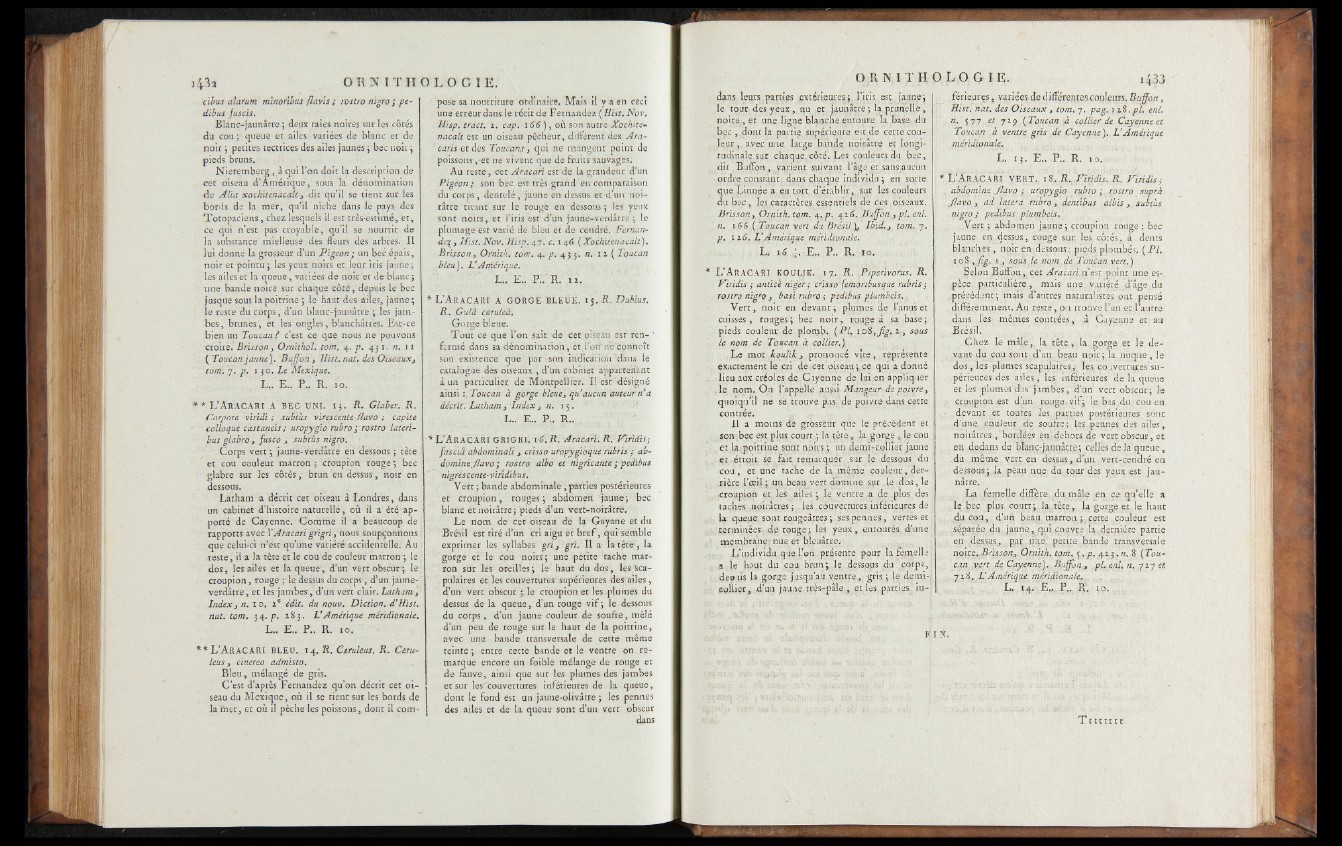 1432
ORNITHOLOGIE.
cibus alarum minoribus flavis ; rostro nigro ; pe-
dibus fuscis.
Blanc-jaunâtre ; deux raies noires sur les côtés
du cou ; queue et ailes variées de blanc et de
noir ; petites tectrices des ailes jaunes ; bec noir ;
pieds bruns.
Nieremberg, à qui l'on doit la description de
cet oiseau d'Amérique, sous la dénomination
de Alia xochitenacalt, dit qu'il se tient sur les
bords de la mer, qu'il niche dans le pays des
Totopaciens, chez lesquels il est très-estimé, et,
ce qui n'est pas croyable, qu'il se nourrit de
la substance mielleuse des fleurs des arbres. Il
lui donne la grosseur d'un Pigeon ; un bec épais,
noir et pointu ; les yeux noirs et leur iris jaune ;
les ailes et la queue, variées de noir et de blanc ;
une bande noire sur chaque côté, depuis le bec
jusque sous la poitrine ; le haut des ailes, jaune ;
le reste du corps, d'un blanc-jaunâtre ; les jam-
bes, brunes, et les ongles, blanchâtres. Est-ce
bien un Toucan ? c'est ce que nous ne pouvons
croire. Brisson, Ornithol. tom. 4. p. 431. n. 11
( Toucan jaune). Buffon, Hist. nat. des Oiseaux,
tom. 7. p. 130. Le Mexique.
L.. E.. P.. R. 10.
** L'ARACARI A BEC UNI. 13. R. Glaber. R.
Corpore viridi ; subtùs virescente flavo ; capite
colloque castaneis ; uropygio rubro ; rostro lateri-
bus glabro, fusco, subtùs nigro.
Corps vert ; jaune-verdâtre en dessous ; tête
et cou couleur marron ; croupion rouge ; bec
glabre sur les côtés, brun en dessus, noir en
dessous.
Latham a décrit cet oiseau à Londres, dans
un cabinet d'histoire naturelle, où il a été ap-
porté de Cayenne. Comme il a beaucoup de
rapports avec l'Aracari grigri, nous soupçonnons
que celui-ci n'est qu'une variété accidentelle. Au
reste, il a la tête et le cou de couleur marron ; le
dos, les ailes et la queue, d'un vert obscur ; le
croupion, rouge ; le dessus du corps, d'un jaune-
verdâtre, et les jambes, d'un vert clair. Latham,
Index, n. 10. 2e édit. du nouv. Diction. d'Hist.
nat. tom. 34. p. 283. L'Amérique méridionale.
L.. E.. P.. R. 10.
** L'ARACARI BLEU. 14. R. Cæruleus. R. Cæru-
leus, cinereo admisto.
Bleu, mélangé de gris.
C'est d'après Fernandez qu'on décrit cet oi-
seau du Mexique, où il se tient sur les bords de
la mer, et où il pêche les poissons, dont il com-
pose sa nourriture ordinaire. Mais il y a en ceci
une erreur dans le récit de Fernandez ( Hist. Nov.
Hisp. tract. 2. cap. 166 ), où son autre Xochite-
nacalt est un oiseau pêcheur, différent des Ara-
caris et des Toucans, qui ne mangent point de
poissons, et ne vivent que de fruits sauvages.
Au reste, cet Aracari est de la grandeur d'un
Pigeon ; son bec est très grand en comparaison
du corps, dentelé, jaune en dessus et d'un noi-
râtre tirant sur le rouge en dessous ; les yeux
sont noirs, et l'iris est d'un jaune-verdâtre ; le
plumage est varié de bleu et de cendré. Fernan-
dez, Hist. Nov. Hisp. 47. c. 146 ( Xochitenacalt).
Brisson, Ornith. tom. 4. p. 433. n. 12 ( Toucan
bleu). L'Amérique.
L.. E.. P.. R. 12.
* L'ARACARI A GORGE BLEUE. 15. R. Dubius.
R. Gulâ cæruleâ.
Gorge bleue.
Tout ce que l'on sait de cet oiseau est ren-
fermé dans sa dénomination, et l'on ne connoît
son existence que par son indication dans le
catalogue des oiseaux, d'un cabinet appartenant
à un particulier de Montpellier. Il est désigné
ainsi : Toucan à gorge bleue, qu'aucun auteur n'a
décrit. Latham, Index, n. 15.
L.. E.. P.. R..
* L'ARACARI GRIGRI. 16. R. Aracari. R. Viridis ;
fasciâ abdominali, crisso uropygioque rubris ; ab-
domine flavo ; rostro albo et nigricante ; pedibus
nigrescente-viridibus.
Vert ; bande abdominale, parties postérieures
et croupion, rouges ; abdomen jaune ; bec
blanc et noirâtre ; pieds d'un vert-noirâtre.
Le nom de cet oiseau de la Guyane et du
Brésil est tiré d'un cri aigu et bref, qui semble
exprimer les syllabes gri, gri. Il a la tête, la
gorge et le cou noirs ; une petite tache mar-
ron sur les oreilles ; le haut du dos, les sca-
pulaires et les couvertures supérieures des ailes,
d'un vert obscur ; le croupion et les plumes du
dessus de la queue, d'un rouge vif ; le dessous
du corps, d'un jaune couleur de soufre, mêlé
d'un peu de rouge sur le haut de la poitrine,
avec une bande transversale de cette même
teinte ; entre cette bande et le ventre on re-
marque encore un foible mélange de rouge et
de fauve, ainsi que sur les plumes des jambes
et sur les couvertures inférieures de la queue,
dont le fond est un jaune-olivâtre ; les pennes
des ailes et de la queue sont d'un vert obscur
dans
ORNITHOLOGIE.
1433
dans leurs parties extérieures ; l'iris est jaune ;
le tour des yeux, nu et jaunâtre ; la prunelle,
noire, et une ligne blanche entoure la base du
bec, dont la partie supérieure est de cette cou-
leur, avec une large bande noirâtre et longi-
tudinale sur chaque côté. Les couleurs du bec,
dit Buffon, varient suivant l'âge et sans aucun
ordre constant dans chaque individu ; en sorte
que Linnée a eu tort d'établir, sur les couleurs
du bec, les caractères essentiels de ces oiseaux.
Brisson, Ornith. tom. 4. p. 426. Buffon, pl. enl.
n. 166 ( Toucan vert du Brésil ), Ibid., tom. 7.
p. 126. L'Amérique méridionale.
L. 16 ½. E.. P.. R. 10.
* L'ARACARI KOULIK. 17. R. Piperivorus. R.
Viridis ; anticè niger ; crisso femoribusque rubris ;
rostro nigro, basi rubro ; pedibus plumbeis.
Vert, noir en devant ; plumes de l'anus et
cuisses, rouges ; bec noir, rouge à sa base ;
pieds couleur de plomb. ( Pl. 108, fig. 2, sous
le nom de Toucan à collier.)
Le mot koulik, prononcé vîte, représente
exactement le cri de cet oiseau ; ce qui a donné
lieu aux créoles de Cayenne de lui en appliquer
le nom. On l'appelle aussi Mangeur de poivre,
quoiqu'il ne se trouve pas de poivre dans cette
contrée.
Il a moins de grosseur que le précédent et
son bec est plus court ; la tête, la gorge, le cou
et la poitrine sont noirs ; un demi-collier jaune
et étroit se fait remarquer sur le dessous du
cou, et une tache de la même couleur, der-
rière l'œil ; un beau vert domine sur le dos, le
croupion et les ailes ; le ventre a de plus des
taches noirâtres ; les couvertures inférieures de
la queue sont rougeâtres ; ses pennes, vertes et
terminées de rouge ; les yeux, entourés d'une
membrane nue et bleuâtre.
L'individu que l'on présente pour la femelle
a le haut du cou brun ; le dessous du corps,
depuis la gorge jusqu'au ventre, gris ; le demi-
collier, d'un jaune très-pâle, et les parties in-
férieures, variées de différentes couleurs. Buffon,
Hist. nat. des Oiseaux, tom. 7. pag. 128. pl. enl.
n. 577 et 729 (Toucan à collier de Cayenne et
Toucan à ventre gris de Cayenne). L'Amérique
méridionale.
L. 13. E.. P.. R. 10.
* L'ARACARI VERT. 18. R. Viridis. R. Viridis ;
abdomine flavo ; uropygio rubro ; rostro suprà
flavo, ad latera rubro, dentibus albis, subtùs
nigro ; pedibus plumbeis.
Vert ; abdomen jaune ; croupion rouge ; bec
jaune en dessus, rouge sur les côtés, à dents
blanches, noir en dessous ; pieds plombés. ( Pl.
108, fig. 1, sous le nom de Toucan vert.)
Selon Buffon, cet Aracari n'est point une es-
pèce particulière, mais une variété d'âge du
précédent ; mais d'autres naturalistes ont pensé
différemment. Au reste, on trouve l'un et l'autre
dans les mêmes contrées, à Cayenne et au
Brésil.
Chez le mâle, la tête, la gorge et le de-
vant du cou sont d'un beau noir ; la nuque, le
dos, les plumes scapulaires, les couvertures su-
périeures des ailes, les inférieures de la queue
et les plumes des jambes, d'un vert obscur ; le
croupion est d'un rouge vif ; le bas du cou en
devant et toutes les parties postérieures sont
d'une couleur de soufre ; les pennes des ailes,
noirâtres, bordées en dehors de vert obscur, et
en dedans de blanc-jaunâtre ; celles de la queue,
du même vert en dessus, d'un vert-cendré en
dessous ; la peau nue du tour des yeux est jau-
nâtre.
La femelle diffère du mâle en ce qu'elle a
le bec plus court ; la tête, la gorge et le haut
du cou, d'un beau marron ; cette couleur est
séparée du jaune, qui couvre la dernière partie
en dessus, par une petite bande transversale
noire. Brisson, Ornith. tom. 5. p. 423. n. 8 (Tou-
can vert de Cayenne). Buffon, pl. enl. n. 727 et
728. L'Amérique méridionale.
L. 14. E.. P.. R. 10.
FIN.
Ttttttt